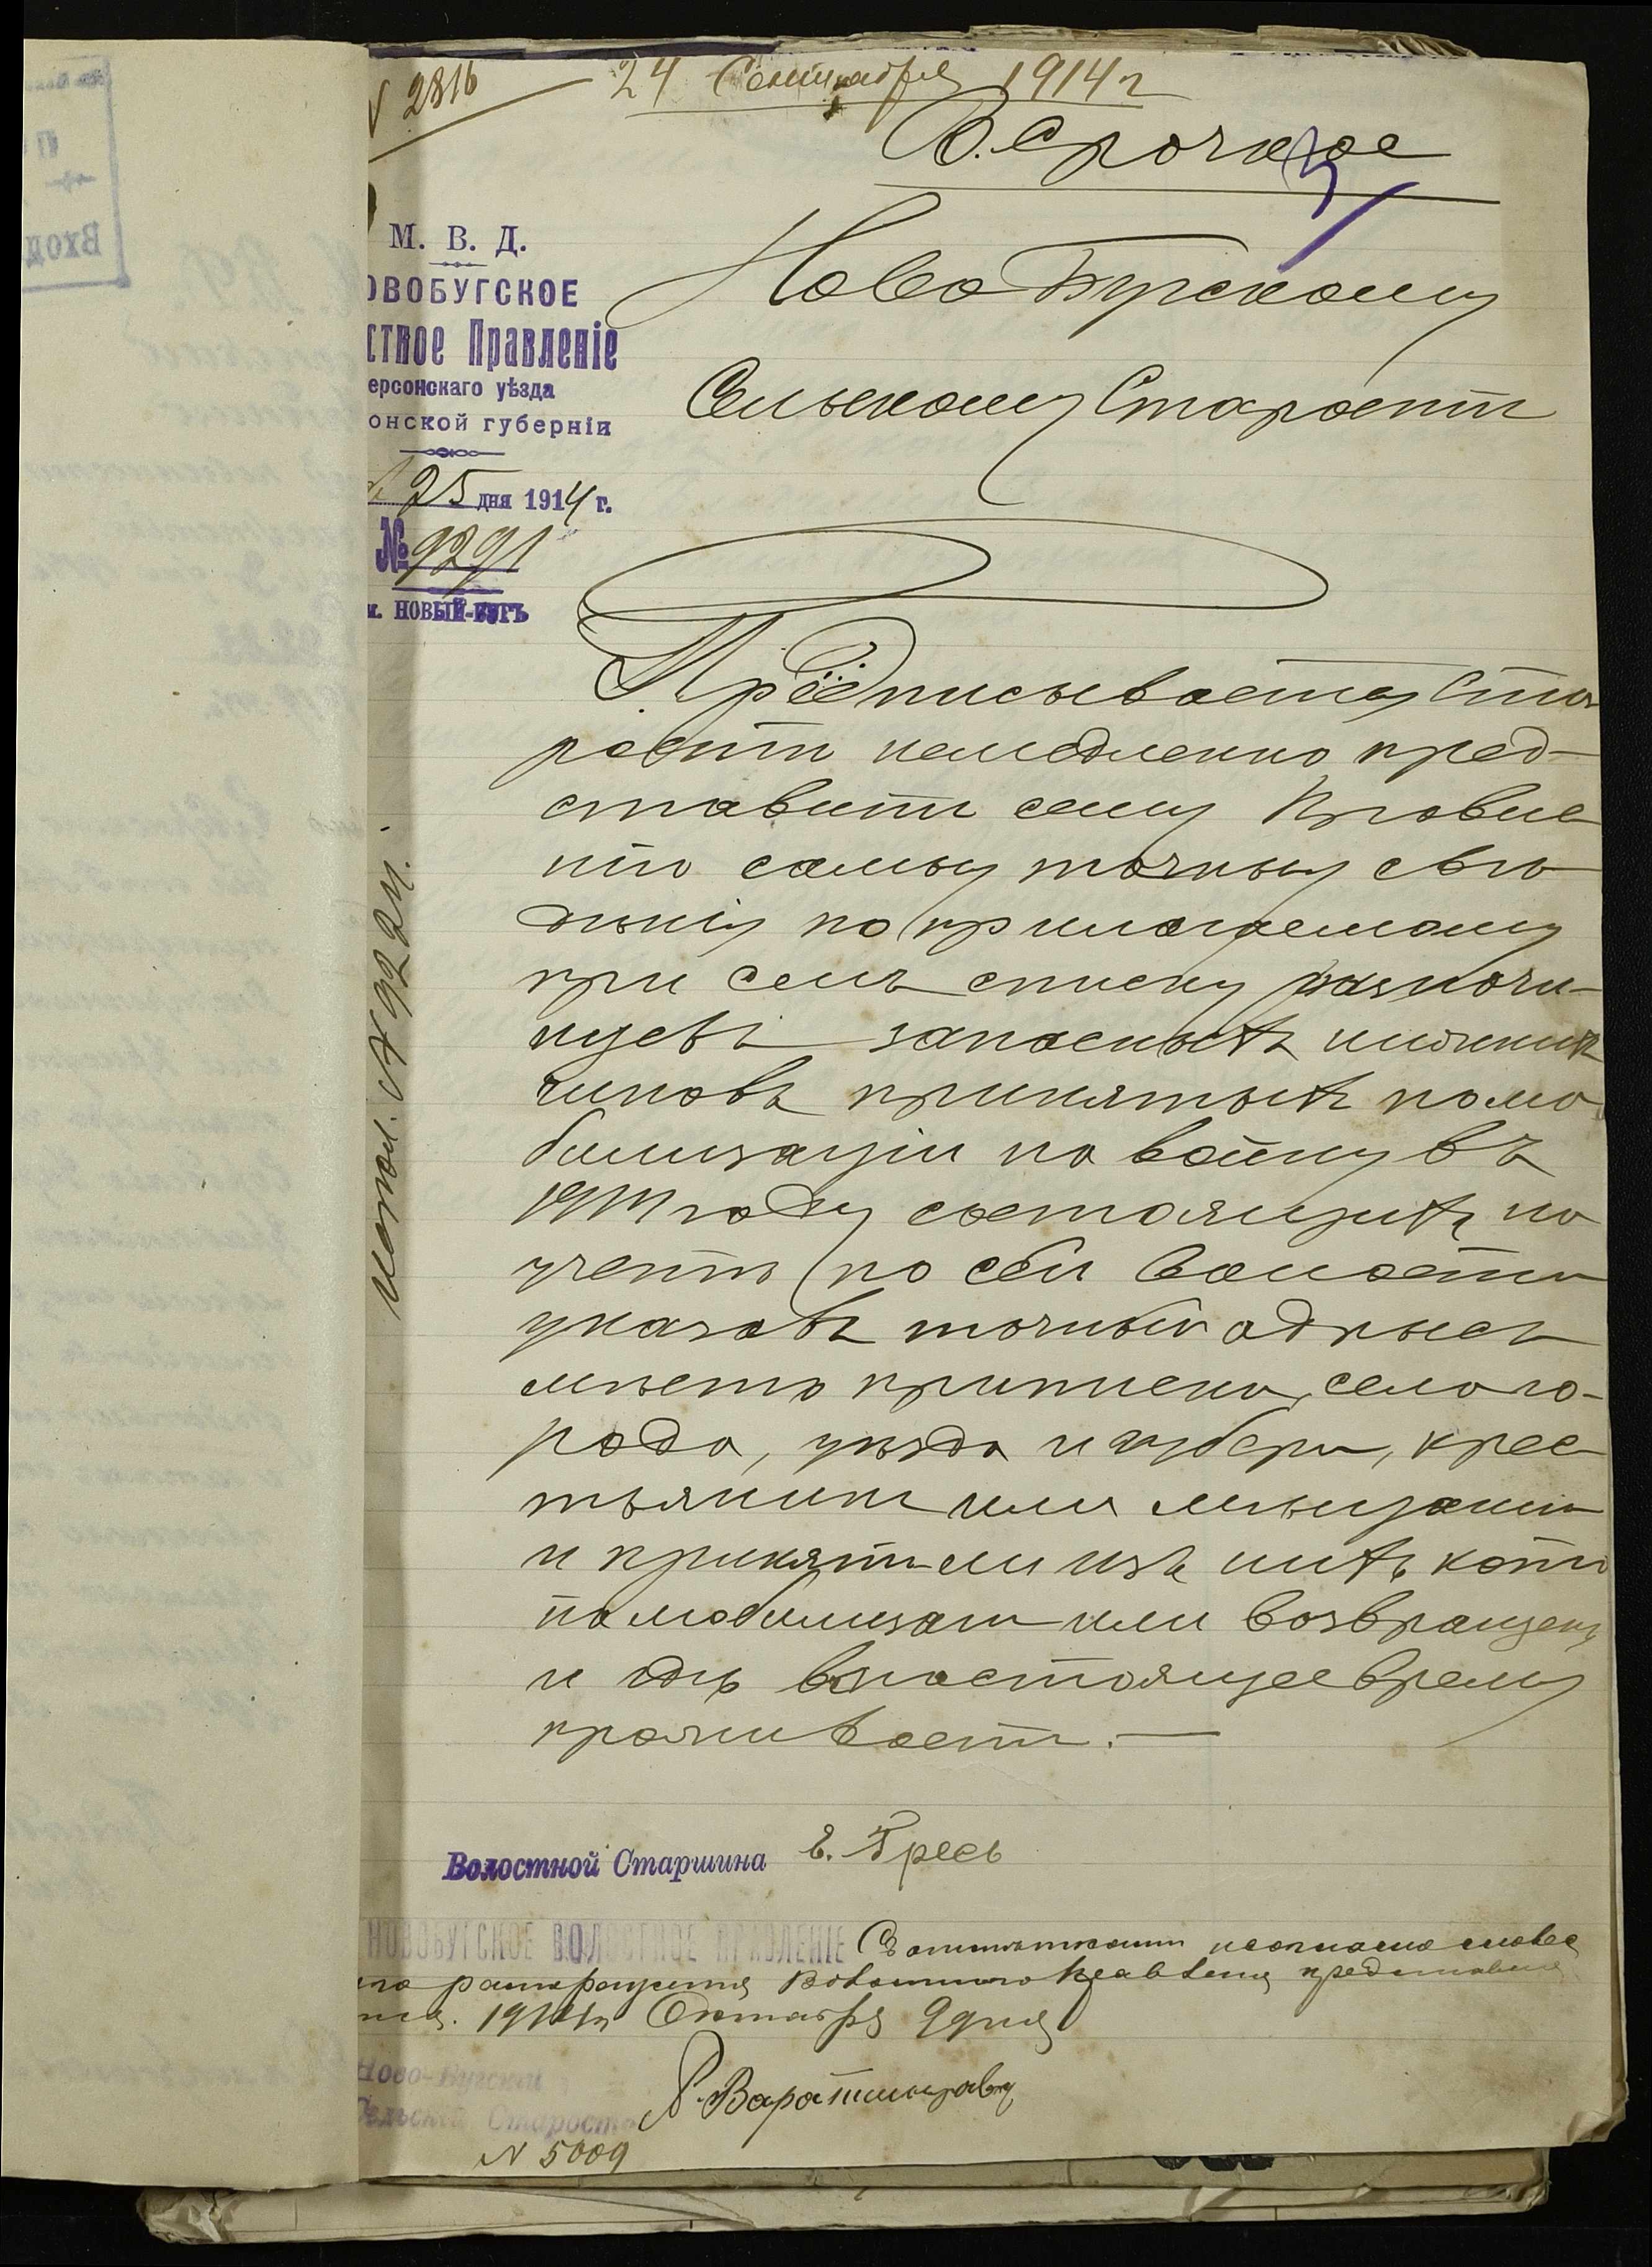 № 2816
24 Сентября 1914 г
В. Срочное
М. В. Д.
ОВОБУГСКОЕ
СТНОЕ Правленіе
ерсонскаго уѣзда
онской губерніи
25 дня 1914 г.
№ 9291
м. НОВЫЙ-БУГЪ
Ново Бугскому
Сельскому Старостѣ
Предписываетъ Ста
ростѣ немедленно пред-
ставить сему Правле
нію самыя точныя свѣ
дѣнія по прилагаемому
при семъ списку разночи-
нцевъ запасныхъ нижнихъ
чиновъ принятыхъ по мо
билизаціи на войну въ
1914 году состоящихъ на
учетѣ по сей волости
указавъ точный адресъ
мѣсто приписки, село го-
рода, уѣзда и губерн, крес
тьянинъ или мѣщанинъ
и приняты ли изъ нихъ кто
по мобилизаци или возвращенъ
и гдѣ в настоящее время
проживаетъ. —
Волостной Старшина Е. Гресь
НОВОБУГСКОЕ ВОЛОСТНОЕ ПРАВЛЕНІЕ словес
Волостного Правленія
1914 г Октября 9 дня
Ново-Бугскій
Сельскій Староста
№ 5009
Исполн. № 9224.
Вход